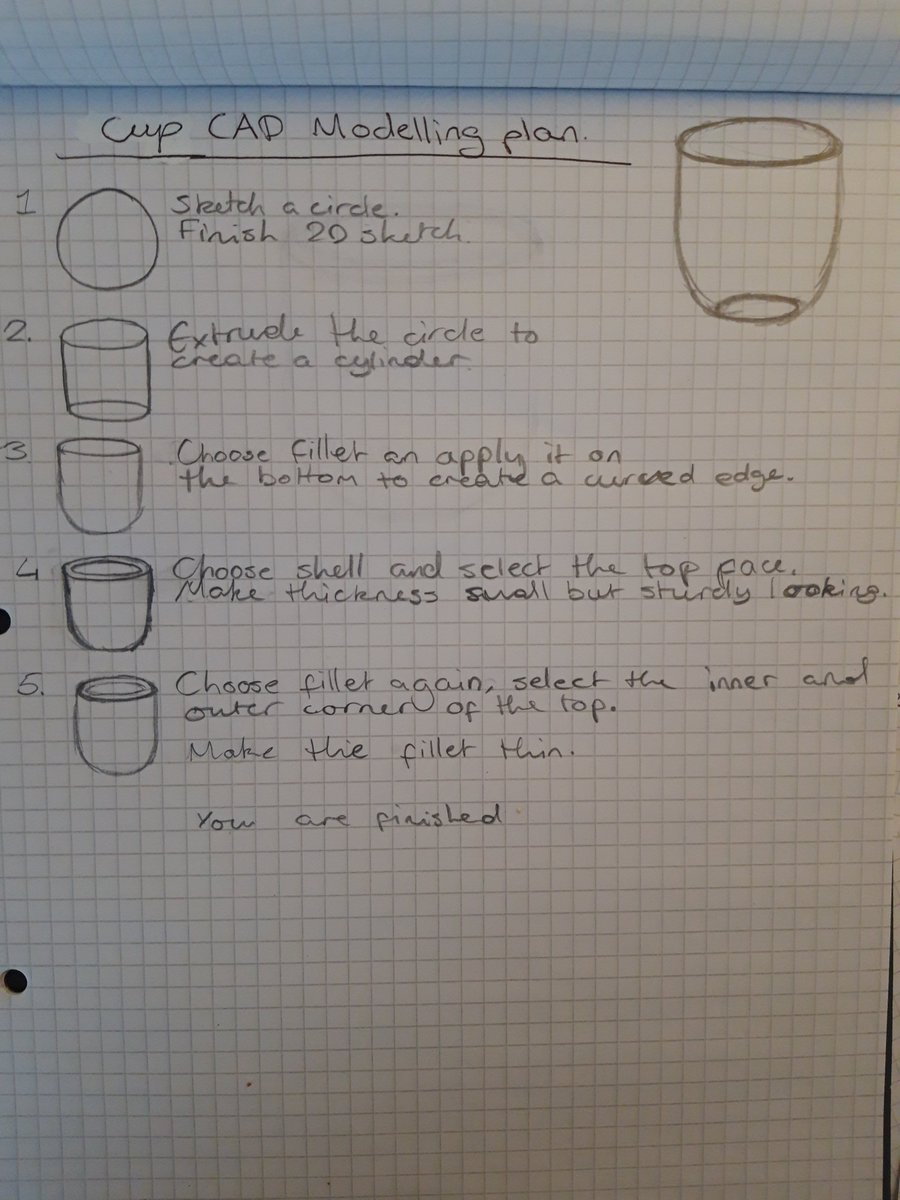 Cup CAD Modelling plan.
1 Sketch a circle.
Finish 2D sketch.
2. Extrude the circle to
create a cylinder.
3 Choose fillet an apply it on
the bottom to create a curved edge.
4 Choose shell and select the top face.
Make thickness small but sturdy looking.
5. Choose fillet again, select the inner and
outer corner of the top.
Make the fillet thin.
You are finished